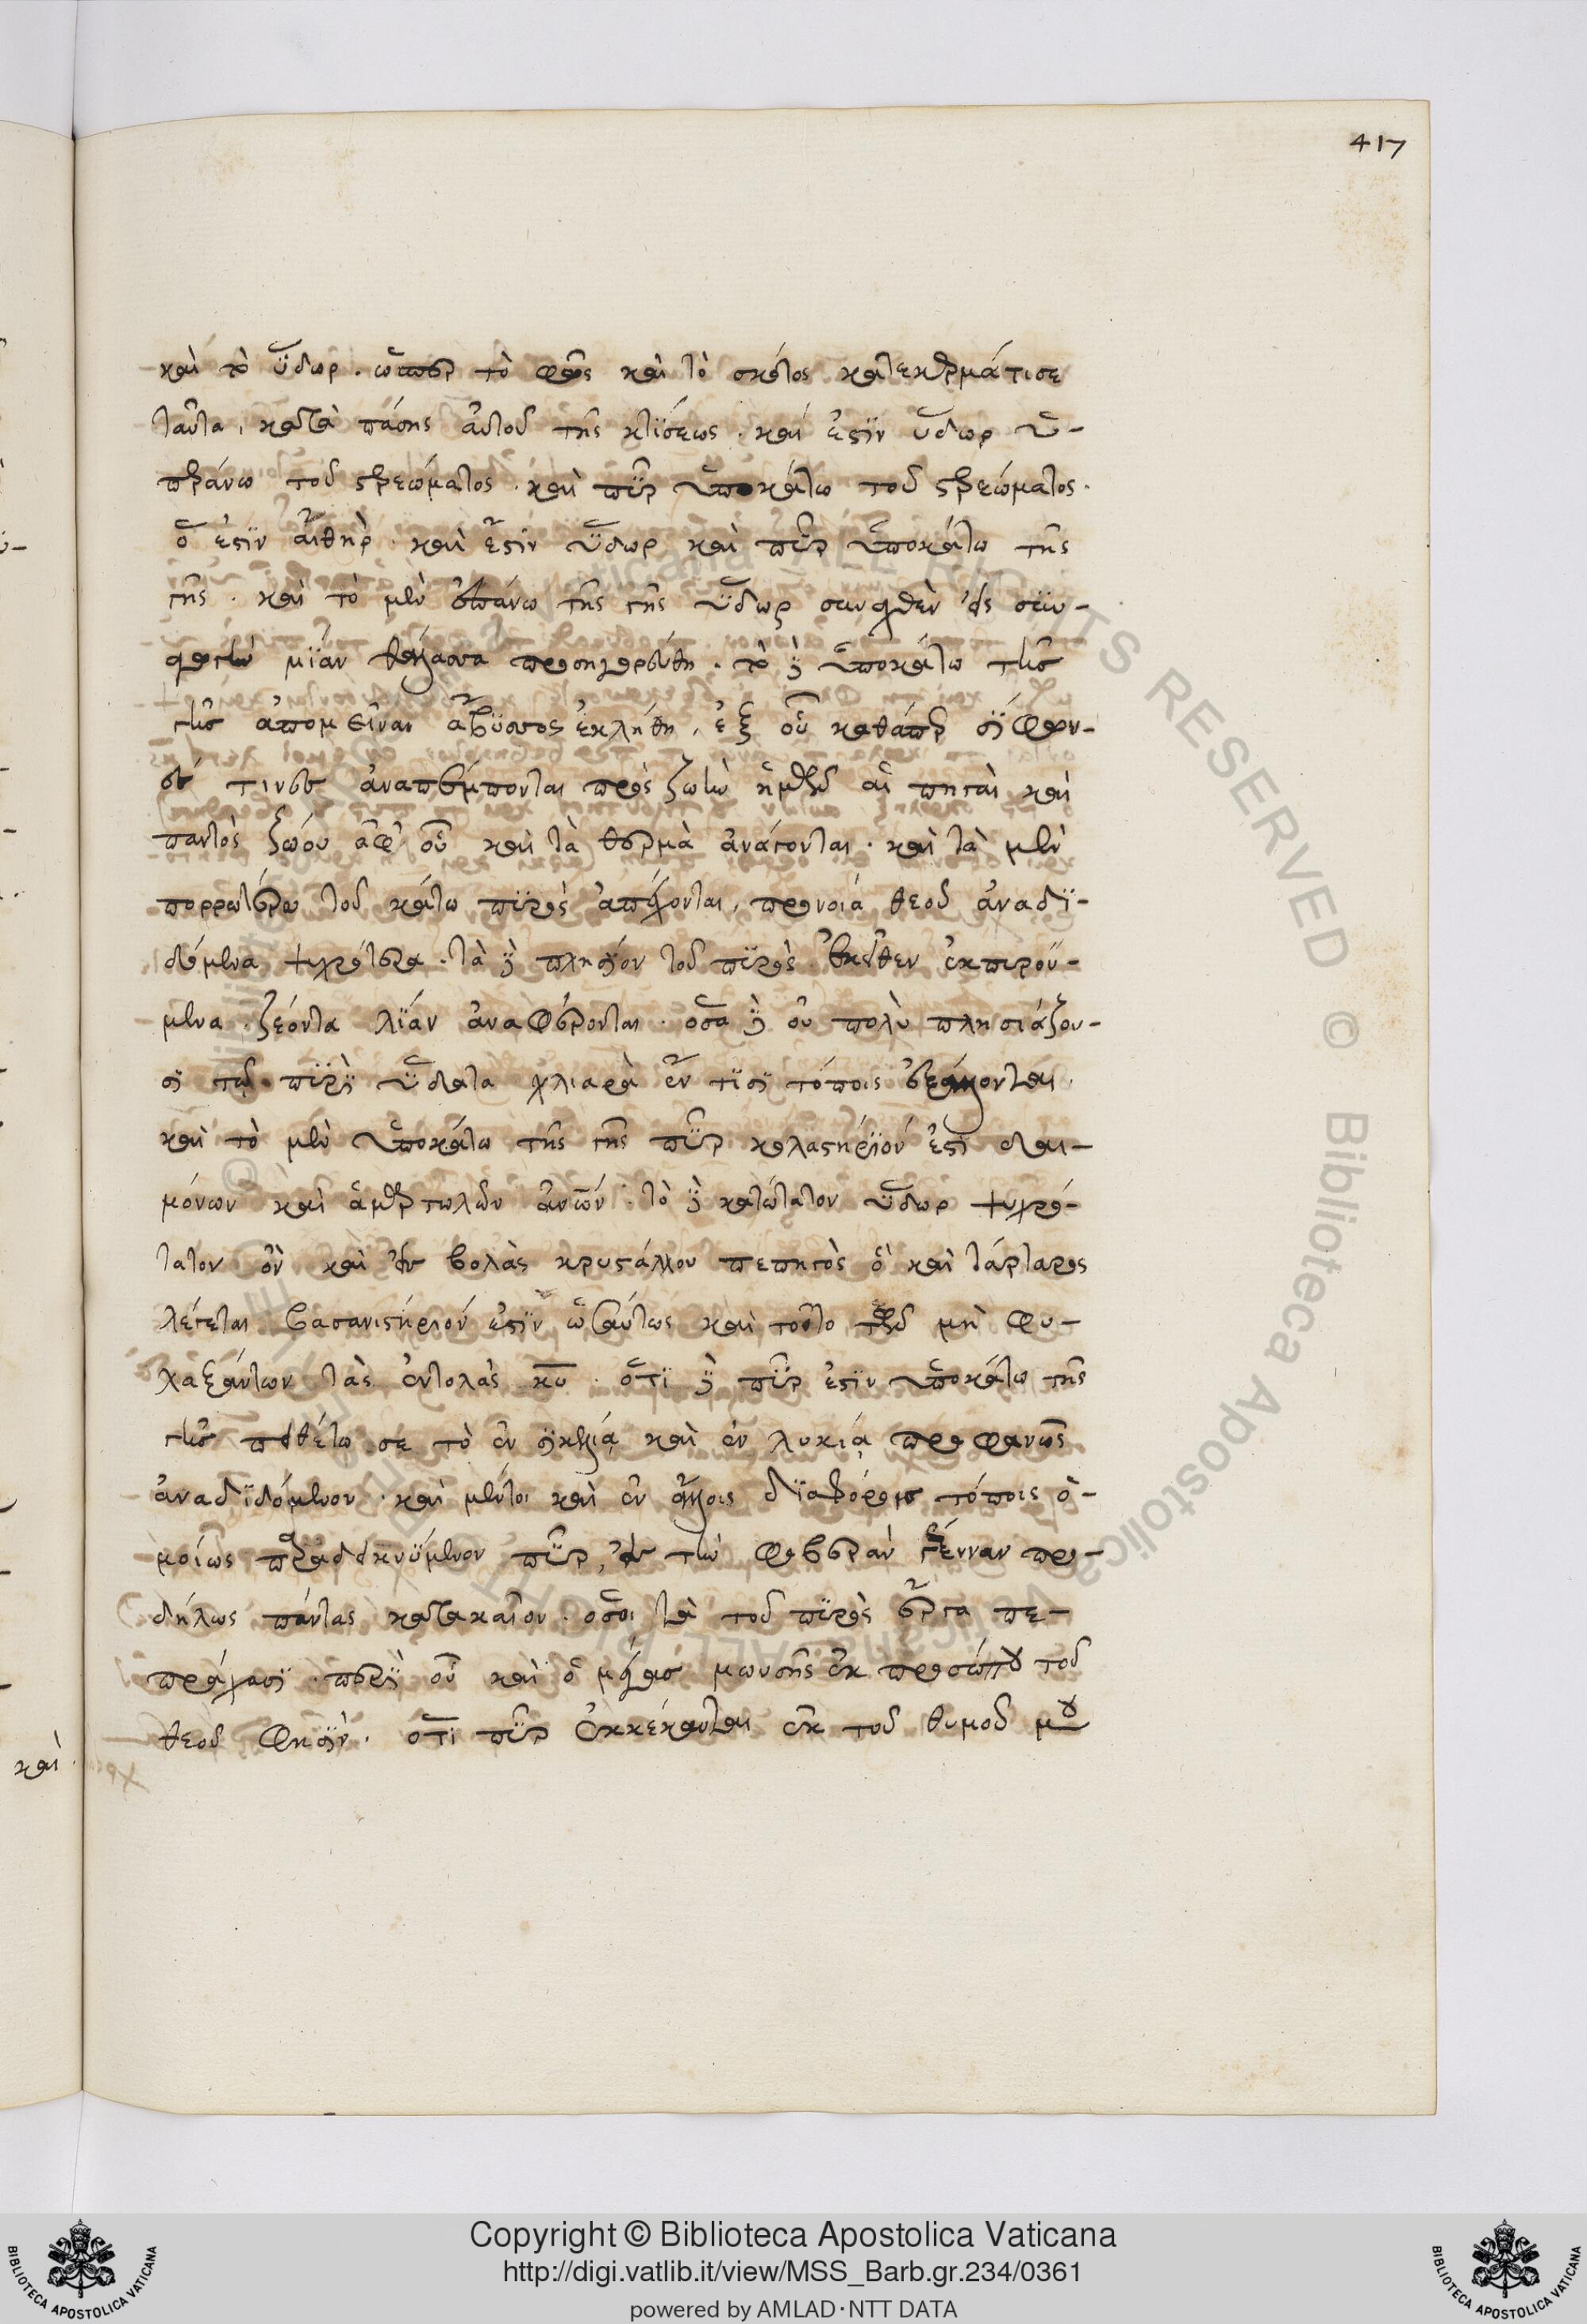 417
καὶ τὸ ὕδωρ. ὥσπερ τὸ φῶς καὶ τὸ σκότος κατεκερμάτισε
ταῦτα, κατὰ πάσης αὐτοῦ τῆς κτίσεως. καί ἐστιν ὕδωρ ὑ-
περάνω τοῦ στερεώματος. καὶ πῦρ ὑποκάτω τοῦ στερεώματος.
ὅ ἐστιν αἰθήρ. καὶ ἔστιν ὕδωρ καὶ πῦρ ὑποκάτω τῆς
γῆς. καὶ τὸ μὲν ἐπάνω τῆς γῆς ὕδωρ συναχθὲν εἰς συν-
αγωγὴν μίαν θάλασσα προσηγορεύθη. τὸ δὲ ὑποκάτω τῆς
γῆς ἀπομεῖναν ἄβυσσος ἐκλήθη, ἐξ οὗ καθάπερ σίφων-
ές τινες ἀναπέμπονται πρὸς ζωὴν ἡμῶν αἱ πηγαὶ καὶ
παντὸς ζώου ἀφ' οὗ καὶ τὰ θερμὰ ἀνάγονται. καὶ τὰ μὲν
πορρωτέρω τοῦ κάτω πυρὸς ἀπέχονται, προνοίᾳ θεοῦ ἀναδι-
δόμενα ψυχρότερα. τὰ δὲ πλησίον τοῦ πυρὸς ἐκεῖθεν ἐκπυρού-
μενα, ζέοντα λίαν ἀναφέρονται. ὅσα δὲ οὐ πολὺ πλησιάζου-
σι τῷ πυρὶ ὕδατα χλιαρὰ ἔν τισι τόποις
καὶ τὸ μὲν ὑποκάτω τῆς γῆς πῦρ κολαστήριόν ἐστι δαι-
μόνων καὶ ἁμαρτωλῶν ἀνων. τὸ δὲ κατώτατον ὕδωρ ψυχρό-
τατον ὂν καὶ εἰς βολὰς κρυστάλλου πεπηγὸς ὃ καὶ τάρταρος
λέγεται βασανιστήριόν ἐστιν ὡσαύτως καὶ τοῦτο τῶν μὴ φυ-
λαξάντων τὰς ἐντολὰς κυ. ὅτι δὲ πῦρ ἐστιν ὑποκάτω τῆς
γῆς πειθέτω σε τὸ ἐν σικελίᾳ καὶ ἐν λυκίᾳ προφανῶς
ἀναδιδόμενον. καὶ μέντοι καὶ ἐν ἄλλοις διαφόροις τόποις ὁ-
μοίως παραδεικνύμενον πῦρ, εἰς τὴν φοβερὰν γέενναν προ-
δήλως πάντας κατακαῖον. ὅσοι τὰ τοῦ πυρὸς ἔργα πε-
πράχασι. περὶ οὗ καὶ ὁ μέγας μωυσῆς ἐκ προσώπου τοῦ
θεοῦ φησίν. ὅτι πῦρ ἐκκέκαυται ἐκ τοῦ θυμοῦ μου
καὶ
Copyright © Biblioteca Apostolica Vaticana
http://digi.vatlib.it/view/MSS_Barb.gr.234/0361
powered by AMLAD · NTT DATA